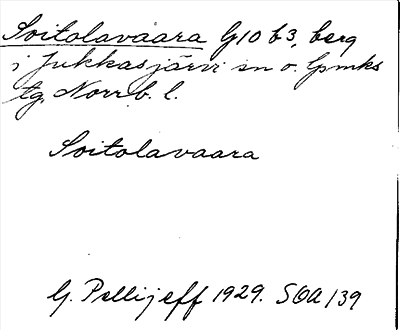 Soitolavaara G10 b3, berg
i Jukkasjärvi sn o. lpmks
tg, Norrb. l.
Soitolavaara
G. Pellijeff 1929. SOA 139